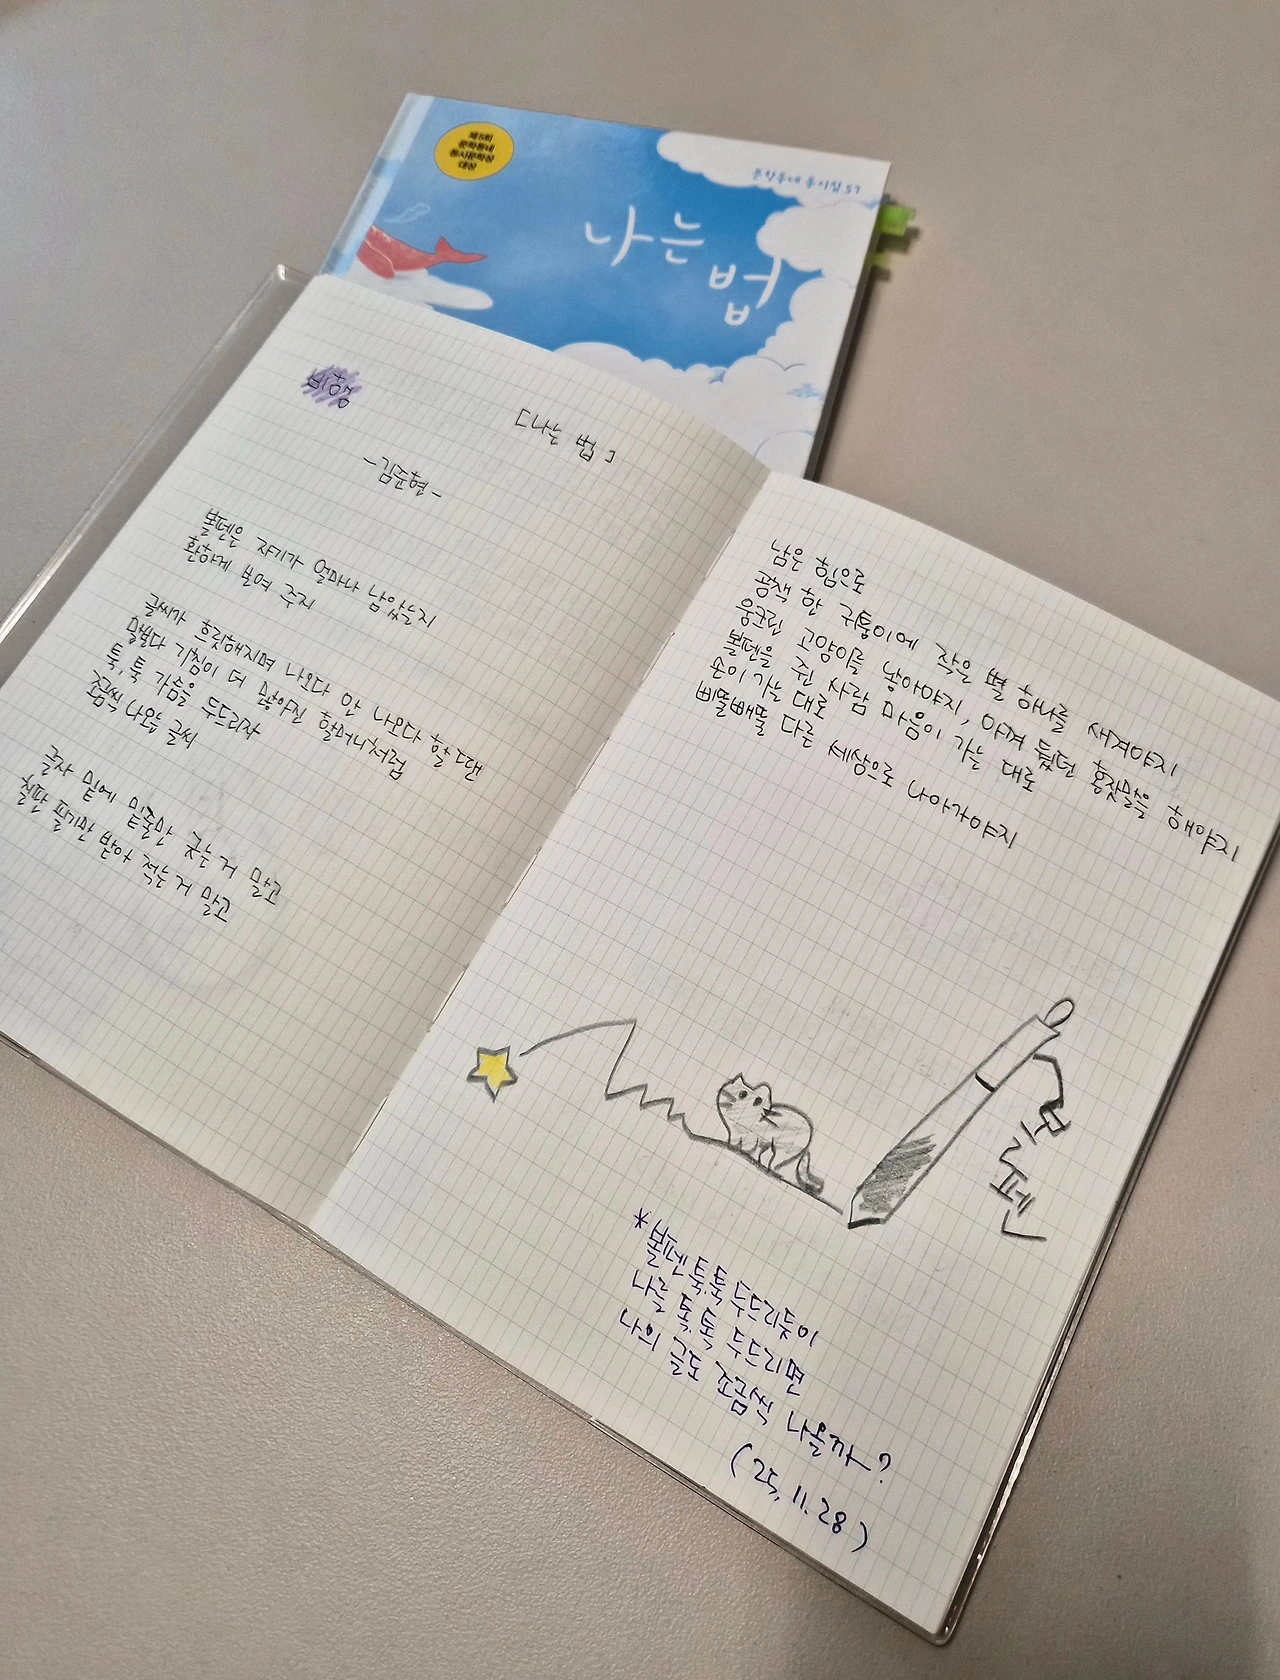 제5회
문학동네
동시문학상
대상
문학동네 동시집 57
나는 법
비행
「나는 법」
-김준현-
볼펜은 자기가 얼마나 남았는지
환하게 보여 주지
글씨가 흐릿해지며 나오다 안 나오다 할 땐
말보다 기침이 더 많아진 할머니처럼
툭, 툭 가슴을 두드리자
조금씩 나오는 글씨
글자 밑에 밑줄만 긋는 거 말고
칠판 필기만 받아 적는 거 말고
남은 힘으로
공책 한 귀퉁이에 작은 별 하나를 새겨야지
웅크린 고양이를 낳아야지, 아껴 뒀던 혼잣말을 해야지
볼펜을 쥔 사람 마음이 가는 대로
손이 가는 대로
삐뚤빼뚤 다른 세상으로 나아가야지
펜
*볼펜 톡.톡 두드리듯이
나를 톡.톡 두드리면
나의 글도 조금씩 나올까?
(25.11.28)